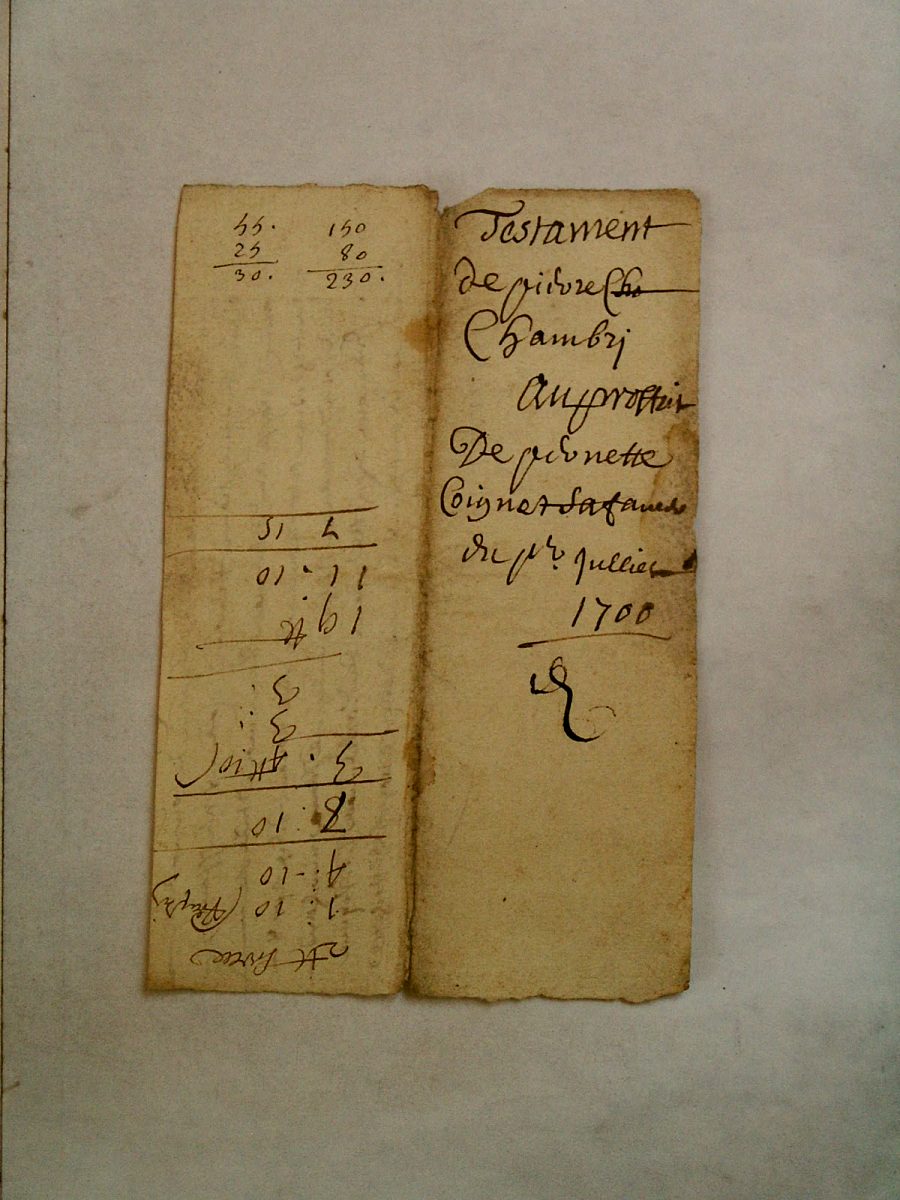 55. 150
25 80
30. 230.
Testament
De pierre Cha
Chambri
Au proffit
De pieronette
Coignet Sa fame
du pr. Jullies
1700
7 15
11 . 10
19 tt
3
3
3 .
8 : 10
4 . - 10
1 : 10